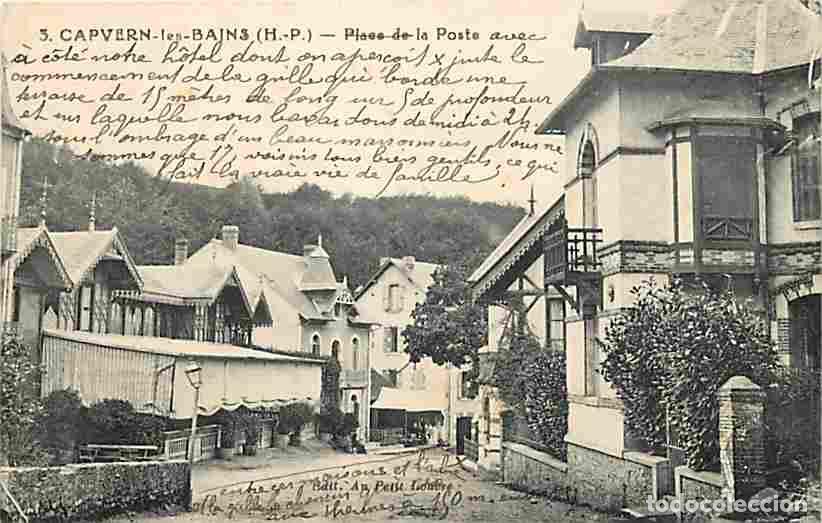 3. CAPVERN-les-BAINS (H.-P.) — Place de la Poste avec
à côté notre hôtel dont on aperçoit x juste le
commencement de la grille qui borde une
terrasse de 15 mètres de long sur 5 de profondeur
et sur laquelle nous bavardons de midi à 2h.
sous l'ombrage d'un beau marronniers Nous ne
sommes que 17 voisins tous biens gentils, ce qui
fait la vraie vie de famille.
entre ces
Edit. Au Petit Louvre
la grille
150 m.
todocoleccion